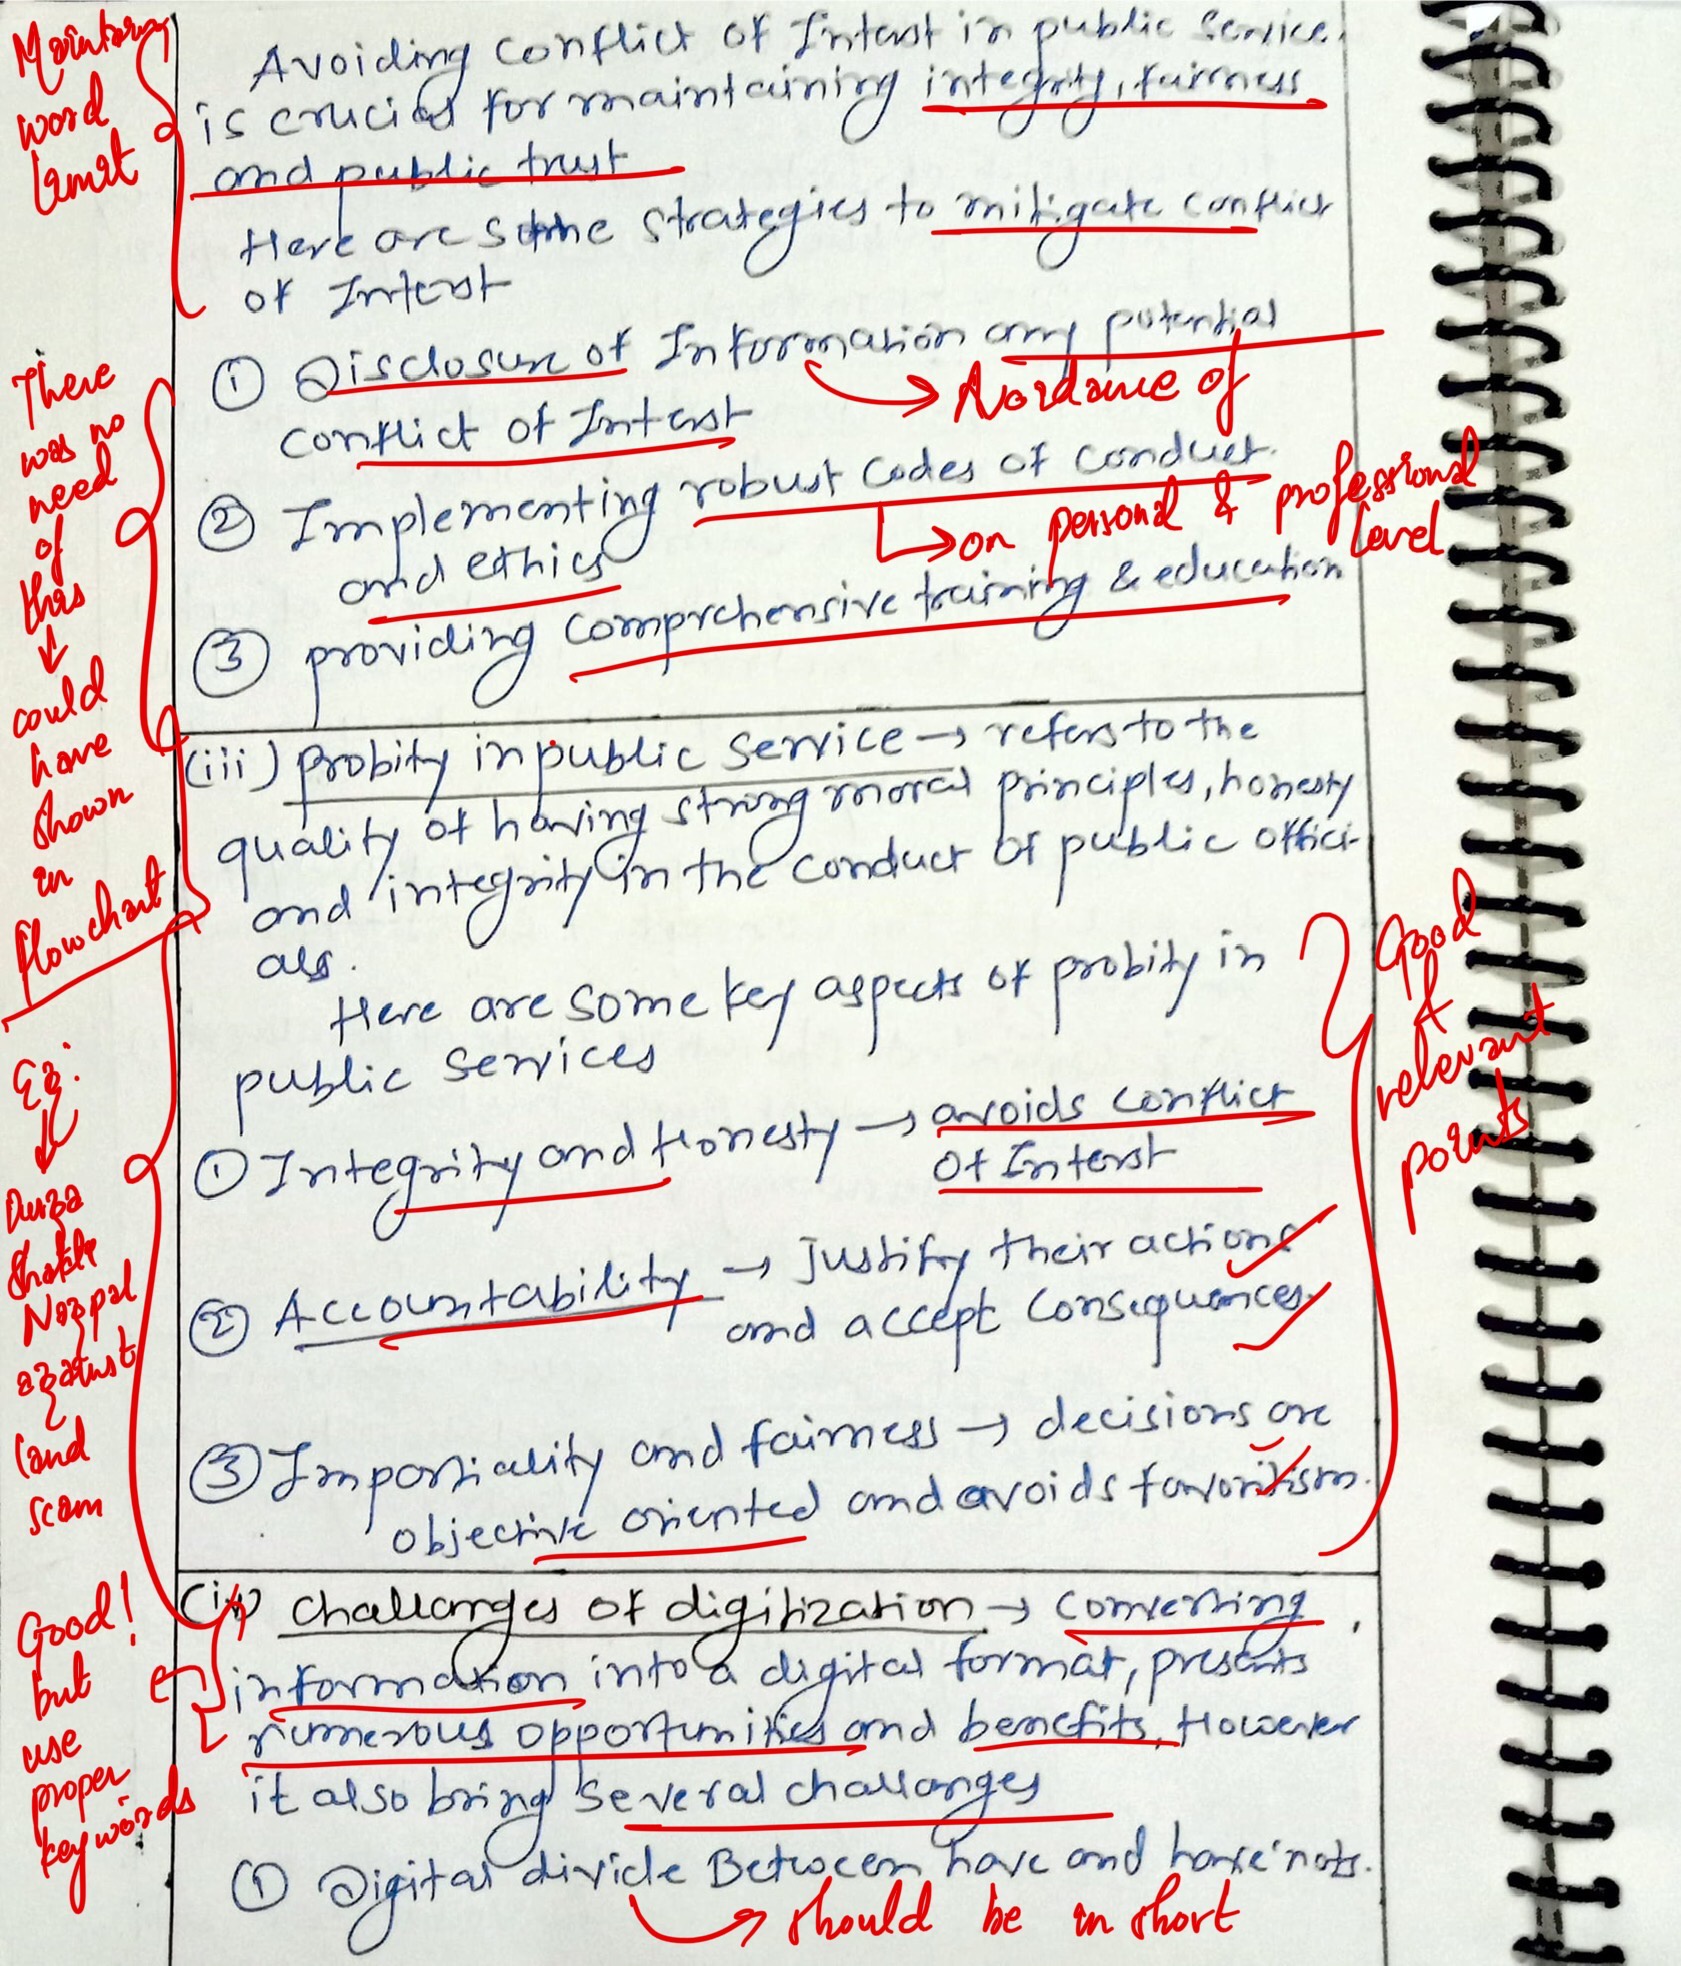 Maintain
word
limit
Avoiding conflict of Interst in public service.
is crucial for maintaining integrity, fairness
and public trust
Here are some strategies to mitigate conflict
of Interst
① Disclosure of Information any potential
→ Avoidance of
conflict of Interst
② Implementing robust codes of conduct.
→ on personal & professional
level
and ethics
③ providing comprehensive training & education
There
was no
need
of
this
↓
could
have
shown
in
flowchart
(iii) probity in public service → refers to the
quality of having strong moral principles, honesty
and integrity in the conduct of public offici-
als.
Here are some key aspects of probity in
public services
① Integrity and Honesty → avoids conflict
of Interst
② Accountability → Justify their actions
and accept consequences.
③ Impartiality and fairness → decisions are
objective oriented and avoids favoritism.
Good
&
relevant
points
Eg:
↓
Durga
Shakti
Nagpal
against
land
scam
(iv) challanges of digitization → converting
information into a digital format, presents
numerous opportunities and benefits, However
it also bring several challanges
① Digital divide Between have and have nots.
→ should be in short
Good!
but
use
proper
keywords